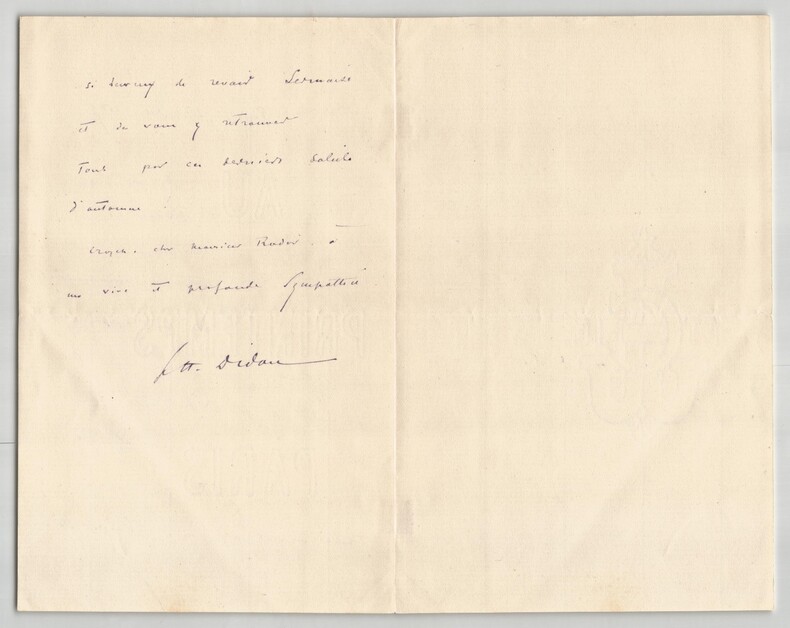 si heureux de revoir Sermaize
et de vous y retrouver
tous par ces derniers soleils
d'automne.
Croyez, cher monsieur Rador, à
ma vive et profonde sympathie
fr H. Didon